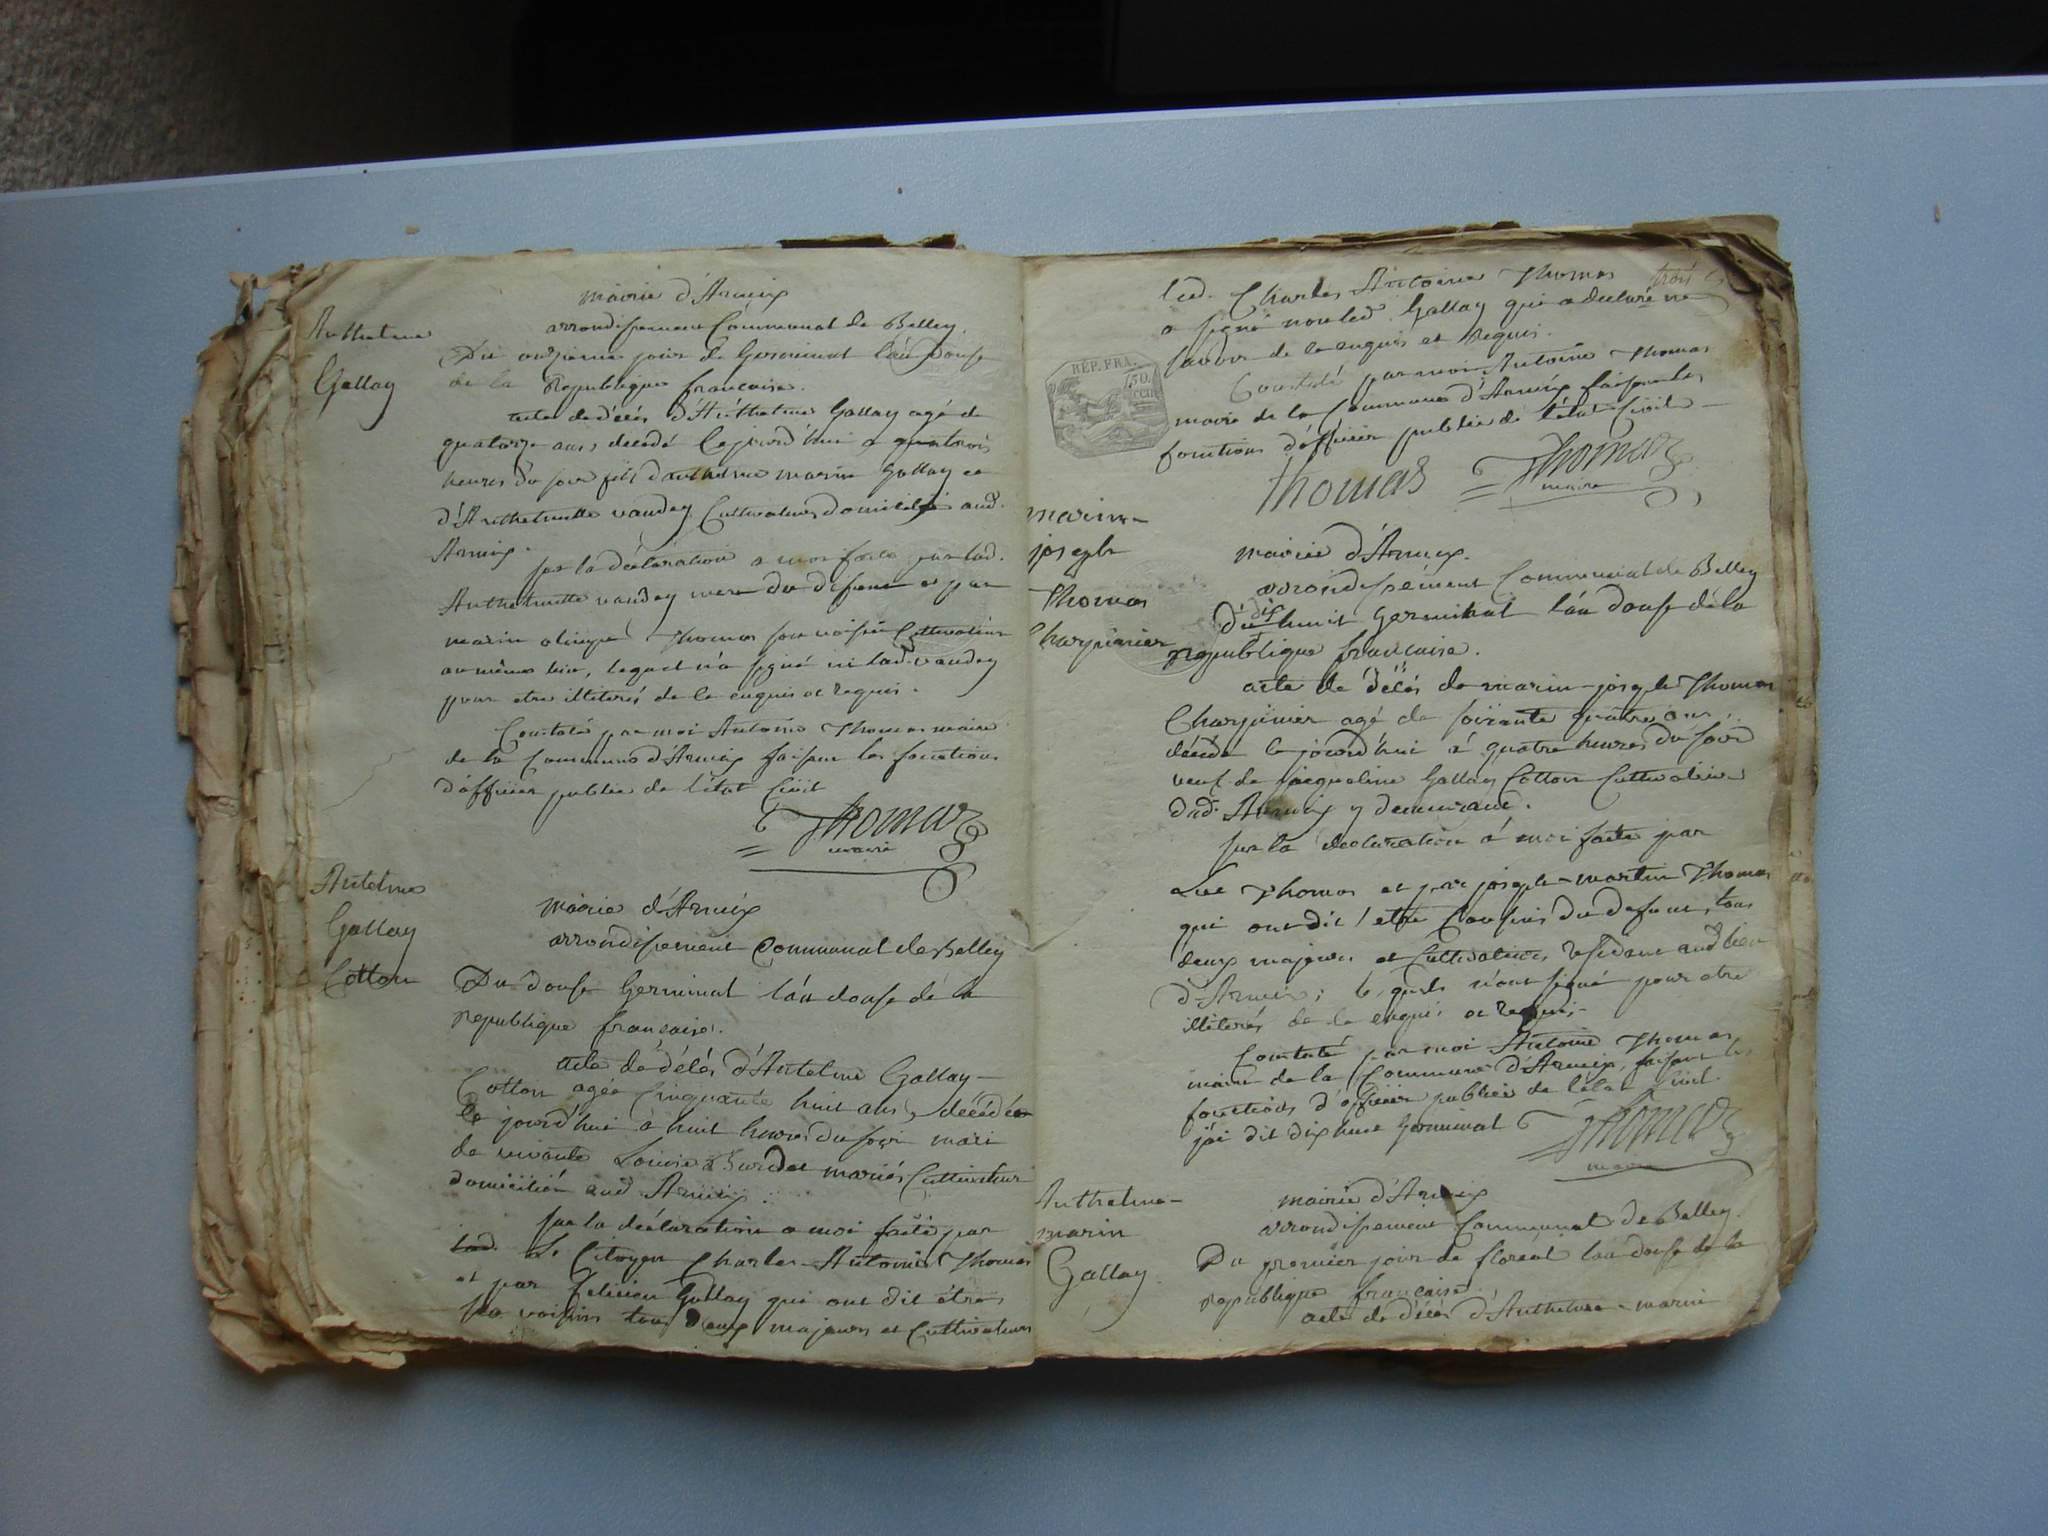 Anthelme
Gallay
mairie d'Armix
arrondissement Communal de Belley.
Du onzieme jour de Germinal l'an douse
de la Republique francaise.
acte de décés d'Anthelme Gallay agé de
quatorze ans, decedé cejourd'hui a trois
heures du soir fils d'anthelme marin Gallay et
d'Anthelmette vaudey Cultivateurs domiciliés aud.
Armix.
sur la déclaration a moi faite par lad.
Anthelmette vaudey mere du defunt et par
marin olimpe Thomas son voisin Cultivateur
au même lieu, lequel n'a signé ni lad. vaudey
pour etre illiterés de le enquis et requis.
Constaté par moi Antoine Thomas maire
de la Commune d'Armix faisant les fonctions
d'officier public de l'état Civil
Thomas
maire
Antelme
Gallay
Cotton
mairie d'Armix
arrondissement Communal de Belley
Du douse Germinal l'an douse de la
republique française.
acte de décés d'Antelme Gallay
Cotton agée Cinquante huit ans, décédé
Ce jourd'hui à huit heures du soir mari
de vivante Louise Burdet mariés Cultivateur
domiciliés aud Armix.
sur la déclaration a moi faite par
lad. Le Citoyen Charles Antoine Thomas
et par Felicien Gallay qui ont dit être
ses voisins tous deux majeurs et Cultivateurs
trois
led. Charles Antoine Thomas
a signé non led. Gallay qui a declaré ne
savoir de le enquis et Requis.
REP. FRA.
50.
CEN
Constaté par moi Antoine Thomas
maire de la Commune d'Armix faisant les
fonctions d'officier public de l'état Civil
Thomas Thomas
maire
marin
joseph
Thomas
Charpinier
mairie d'Armix.
arrondissement Communal de Belley
Du dix huit Germinal l'an douse de la
republique francaise.
acte de décés de marin joseph Thomas
Charpinier agé de soixante quatre ans
décédé le jourd'hui à quatre heures du soir
veuf de jacqueline Gallay Cotton Cultivateur
dud. Armix y demeurant.
sur la declaration à moi faite par
Luc Thomas et par joseph martin Thomas
qui ont dit etre Cousins du defunt, tous
deux majeurs et Cultivateurs residant aud lieu
d'Armix; lesquels n'ont signé pour etre
illiterés de le enquis et requis.
Constaté par moi Antoine Thomas
maire de la Commune d'Armix, faisant les
fonctions d'officier public de l'état Civil.
j'ai dit dix huit Germinal Thomas
maire
Anthelme
marin
Gallay
mairie d'Armix
arrondissement Communal de Belley.
Du premier jour de floreal l'an douse de la
republique française
acte de décés d'Anthelme marin